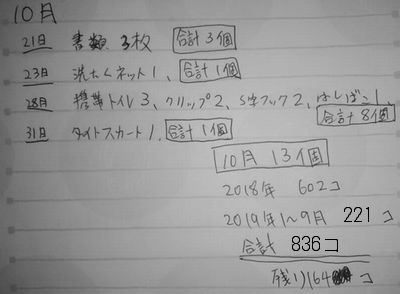 10月
21日 書類 3枚 合計3個
23日 洗たくネット1、合計1個
28日 携帯トイレ3、クリップ2、S字フック2、はしばこ1、
合計8個
31日 タイトスカート1、合計1個
10月 13個
2018年 602コ
2019年1~9月 221コ
合計 836コ
残り)164コ